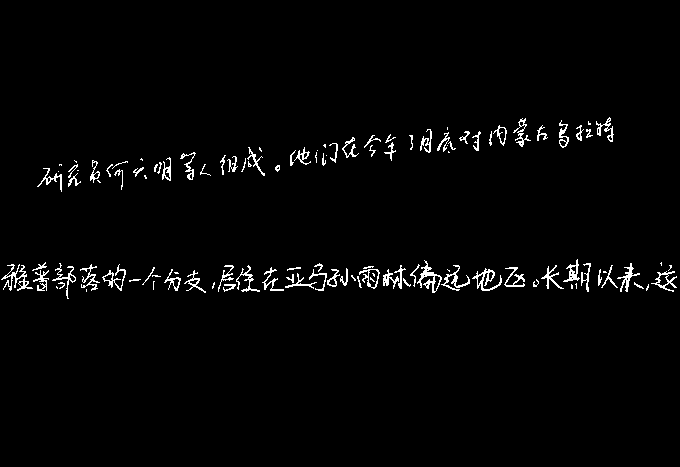 研究员何六明等人组成。他们在今年3月底对内蒙古乌拉特
雅普部落的一个分支,居住在亚马孙雨林偏远地区。长期以来,这